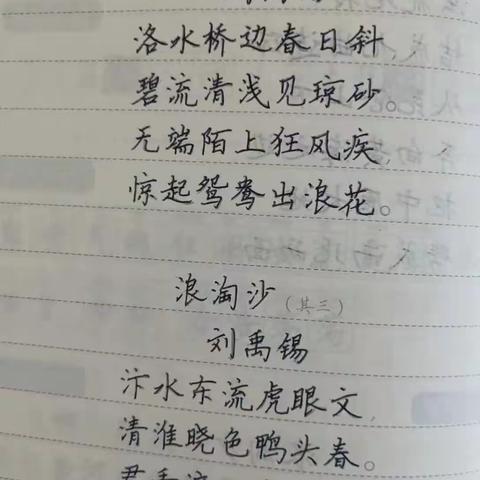 洛水桥边春日斜,
碧流清浅见琼砂。
无端陌上狂风疾
惊起鸳鸯出浪花。
浪淘沙(其三)
刘禹锡
汴水东流虎眼文,
清淮晓色鸭头春。